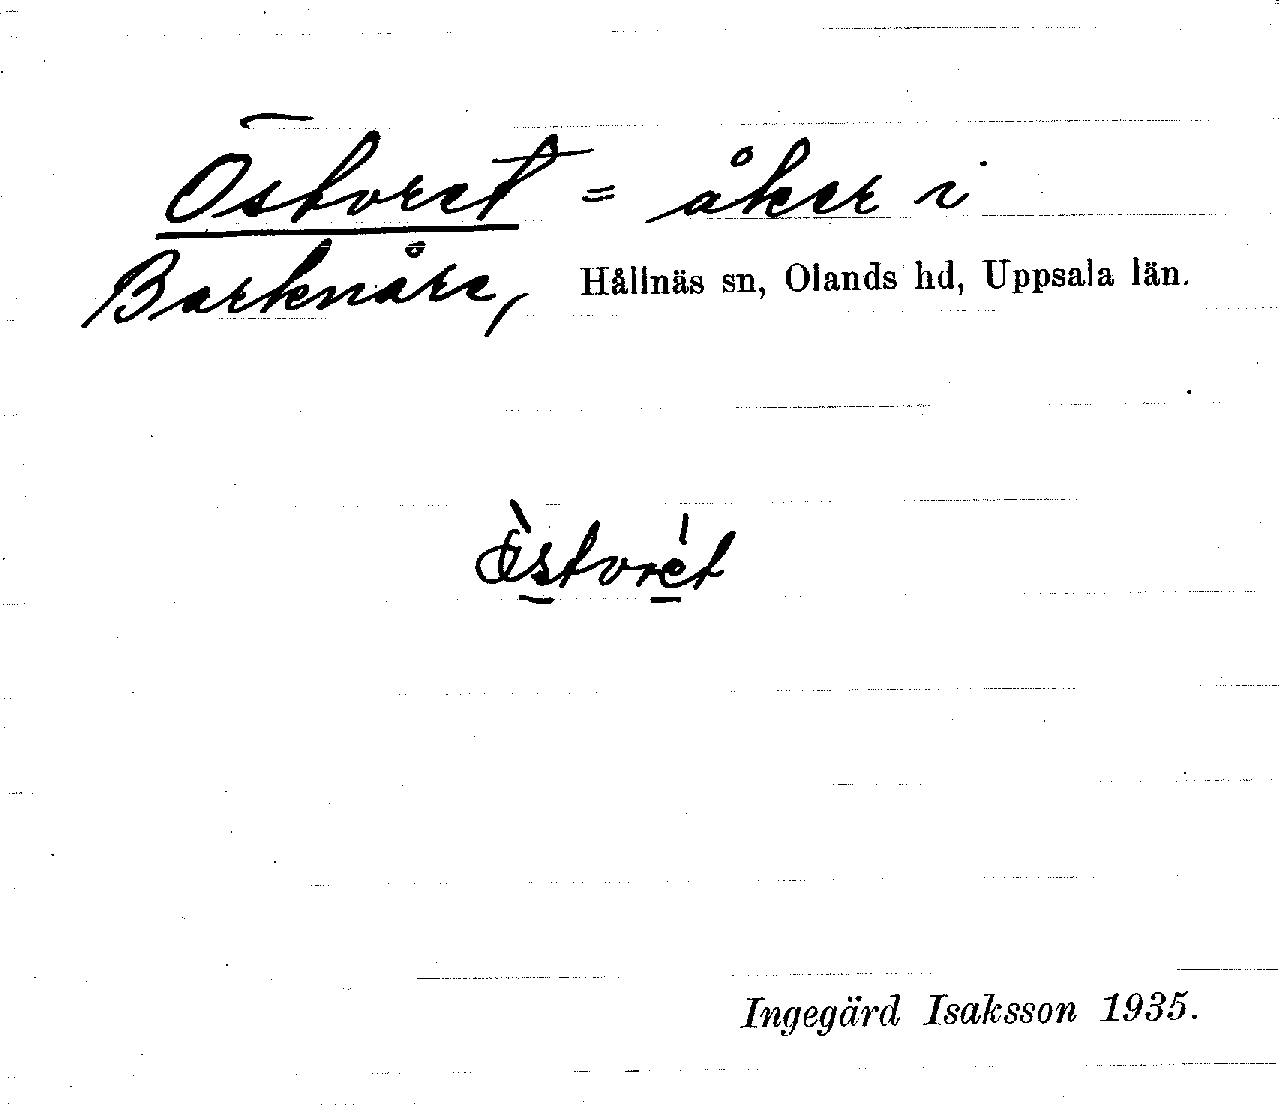 Östvret = åker i
Barknåre, Hållnäs sn, Olands hd, Uppsala län.
Ingegärd Isaksson 1935.